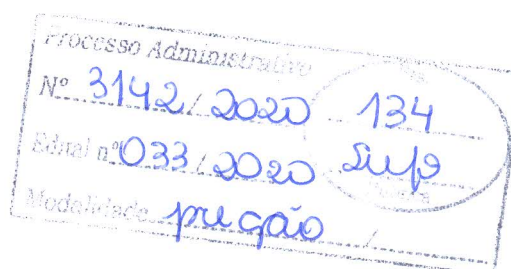 Processo Administrativo
Nº 3142 / 2020 134
Edital nº 033 / 2020
Modalidade pregão /